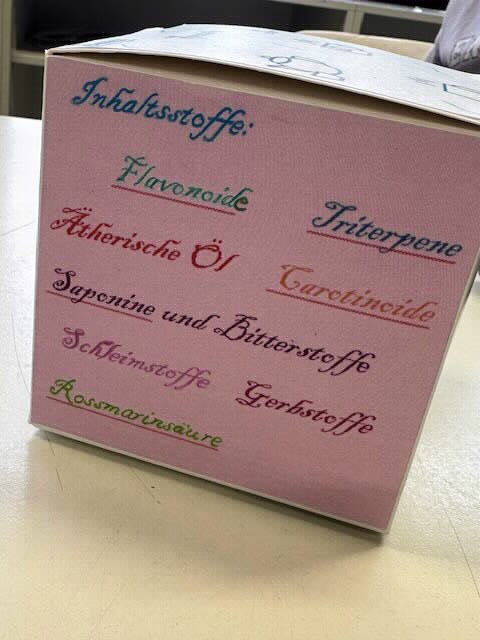 Inhaltsstoffe:
Flavonoide
Triterpene
Ätherische Öl
Carotinoide
Saponine und Bitterstoffe
Schleimstoffe
Gerbstoffe
Rossmarinsäure